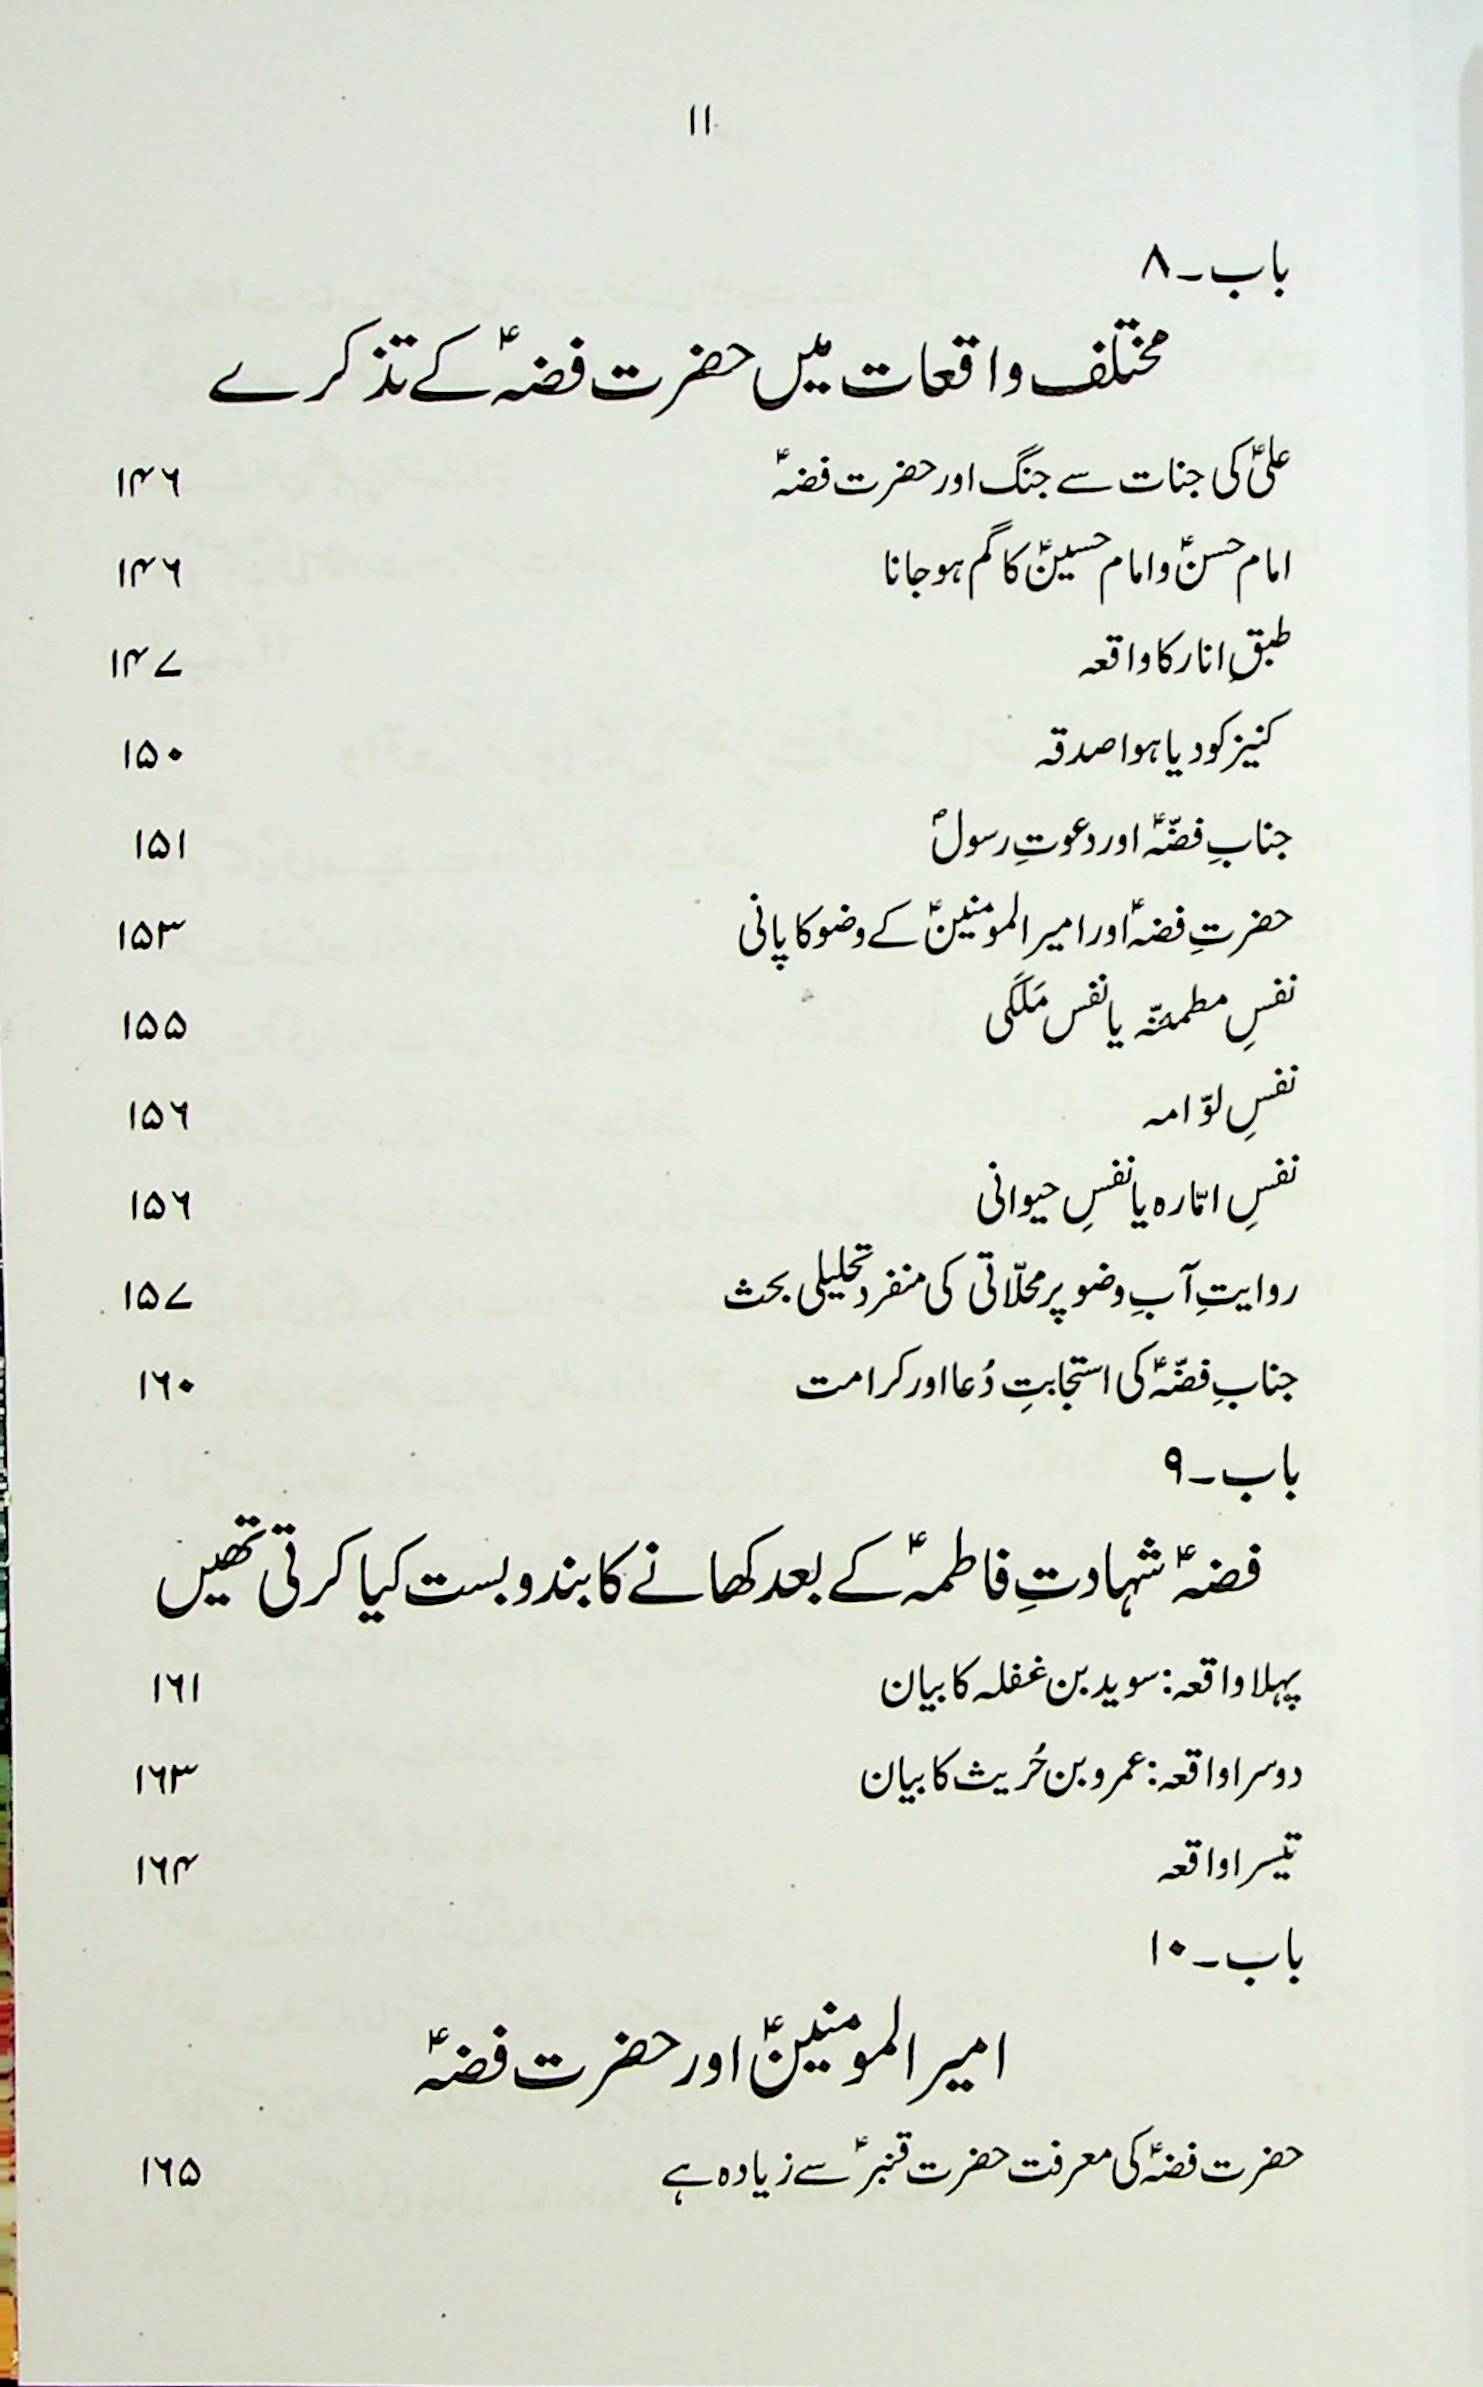 ۱۱
باب۔۸
مختلف واقعات میں حضرت فضہؑ کے تذکرے
علیؑ کی جنات سے جنگ اور حضرت فضہؑ ۱۴۶
امام حسنؑ و امام حسینؑ کا گم ہو جانا ۱۴۶
طبقِ انار کا واقعہ ۱۴۷
کنیز کو دیا ہوا صدقہ ۱۵۰
جنابِ فضّہؑ اور دعوتِ رسولؐ ۱۵۱
حضرتِ فضہؑ اور امیر المومنینؑ کے وضو کا پانی ۱۵۳
نفسِ مطمئنّہ یا نفس مَلَکی ۱۵۵
نفسِ لوّامہ ۱۵۶
نفسِ امّارہ یا نفسِ حیوانی ۱۵۶
روایتِ آبِ وضو پر محلّاتی کی منفرد تحلیلی بحث ۱۵۷
جنابِ فضّہؑ کی استجابتِ دُعا اور کرامت ۱۶۰
باب۔۹
فضہؑ شہادتِ فاطمہؑ کے بعد کھانے کا بندوبست کیا کرتی تھیں
پہلا واقعہ: سوید بن غفلہ کا بیان ۱۶۱
دوسرا واقعہ: عمرو بن حُریث کا بیان ۱۶۳
تیسرا واقعہ ۱۶۴
باب۔۱۰
امیر المومنینؑ اور حضرت فضہؑ
حضرت فضہؑ کی معرفت حضرت قنبرؑ سے زیادہ ہے ۱۶۵